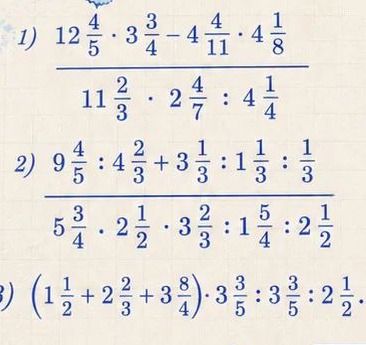 1) 12 4/5 · 3 3/4 − 4 4/11 · 4 1/8
11 2/3 · 2 4/7 : 4 1/4
2) 9 4/5 : 4 2/3 + 3 1/3 : 1 1/3 : 1/3
5 3/4 · 2 1/2 · 3 2/3 : 1 5/4 : 2 1/2
3) (1 1/2 + 2 2/3 + 3 8/4) · 3 3/5 : 3 3/5 : 2 1/2.